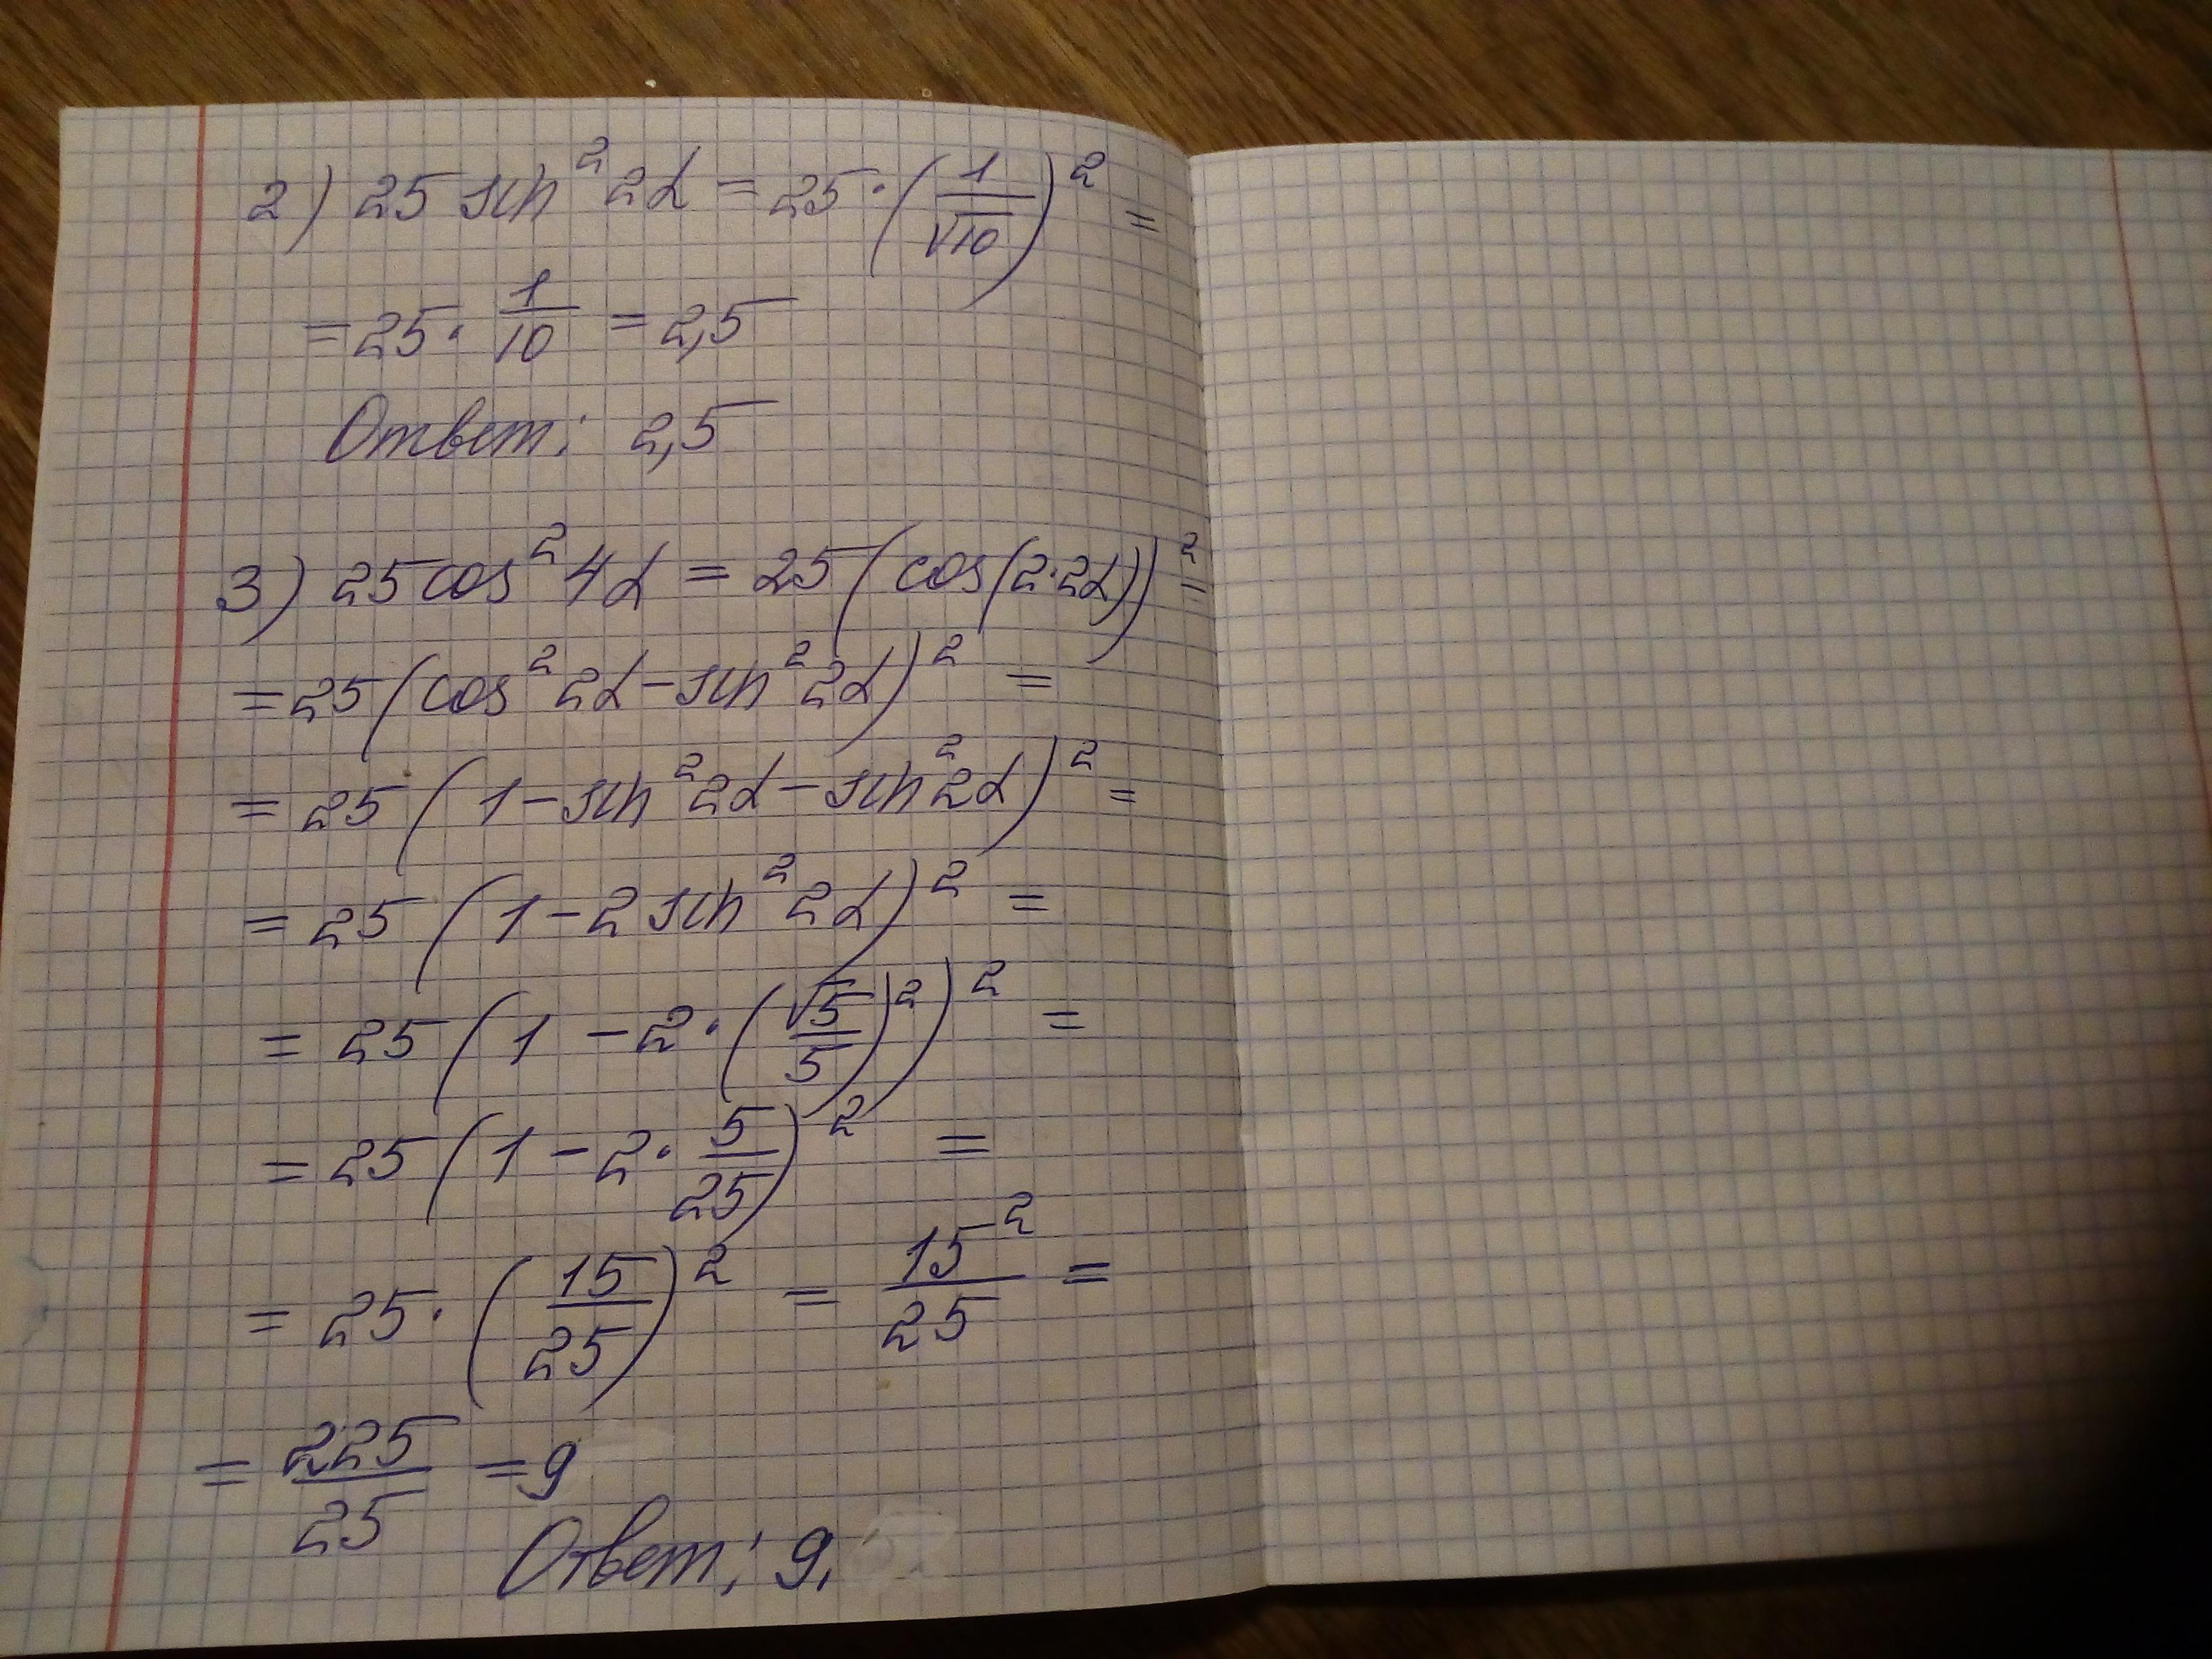 2) 25 sin²2α = 25·(1/√10)² =
= 25·1/10 = 2,5
Ответ: 2,5
3) 25cos²4α = 25(cos(2·2α))² =
= 25(cos²2α - sin²2α)² =
= 25(1 - sin²2α - sin²2α)² =
= 25(1 - 2sin²2α)² =
= 25(1 - 2·(√5/5)²)² =
= 25(1 - 2·5/25)² =
= 25·(15/25)² = 15²/25 =
= 225/25 = 9
Ответ: 9.